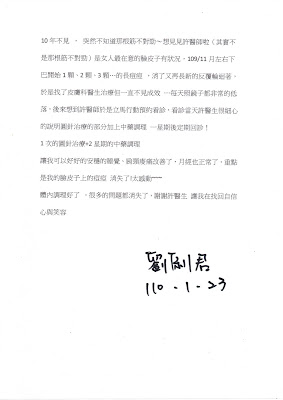 10 年不見 、 突然不知道那根筋不對勁～想見見許醫師啦 ( 其實不
是那根筋不對勁 ) 是女人最在意的臉皮子有狀況，109/11 月左右下
巴開始 1 顆，2 顆，3 顆…的長痘痘 ，消了又再長新的反覆輪迴著，
於是找了皮膚科醫生治療但一直不見成效 一每天照鏡子都非常的低
落，後來想到許醫師於是立馬行動預約看診，看診當天許醫生很細心
的說明圓針治療的部分加上中藥調理 一星期後定期回診！
1 次的圓針治療+2 星期的中藥調理
讓我可以好好的安穩的睡覺，肩頸痠痛改善了，月經也正常了，重點
是我的臉皮子上的痘痘 消失了!太感動~~~
體內調理好了 ，很多的問題都消失了，謝謝許醫生 讓我在找回自信
心與笑容
110.1.23